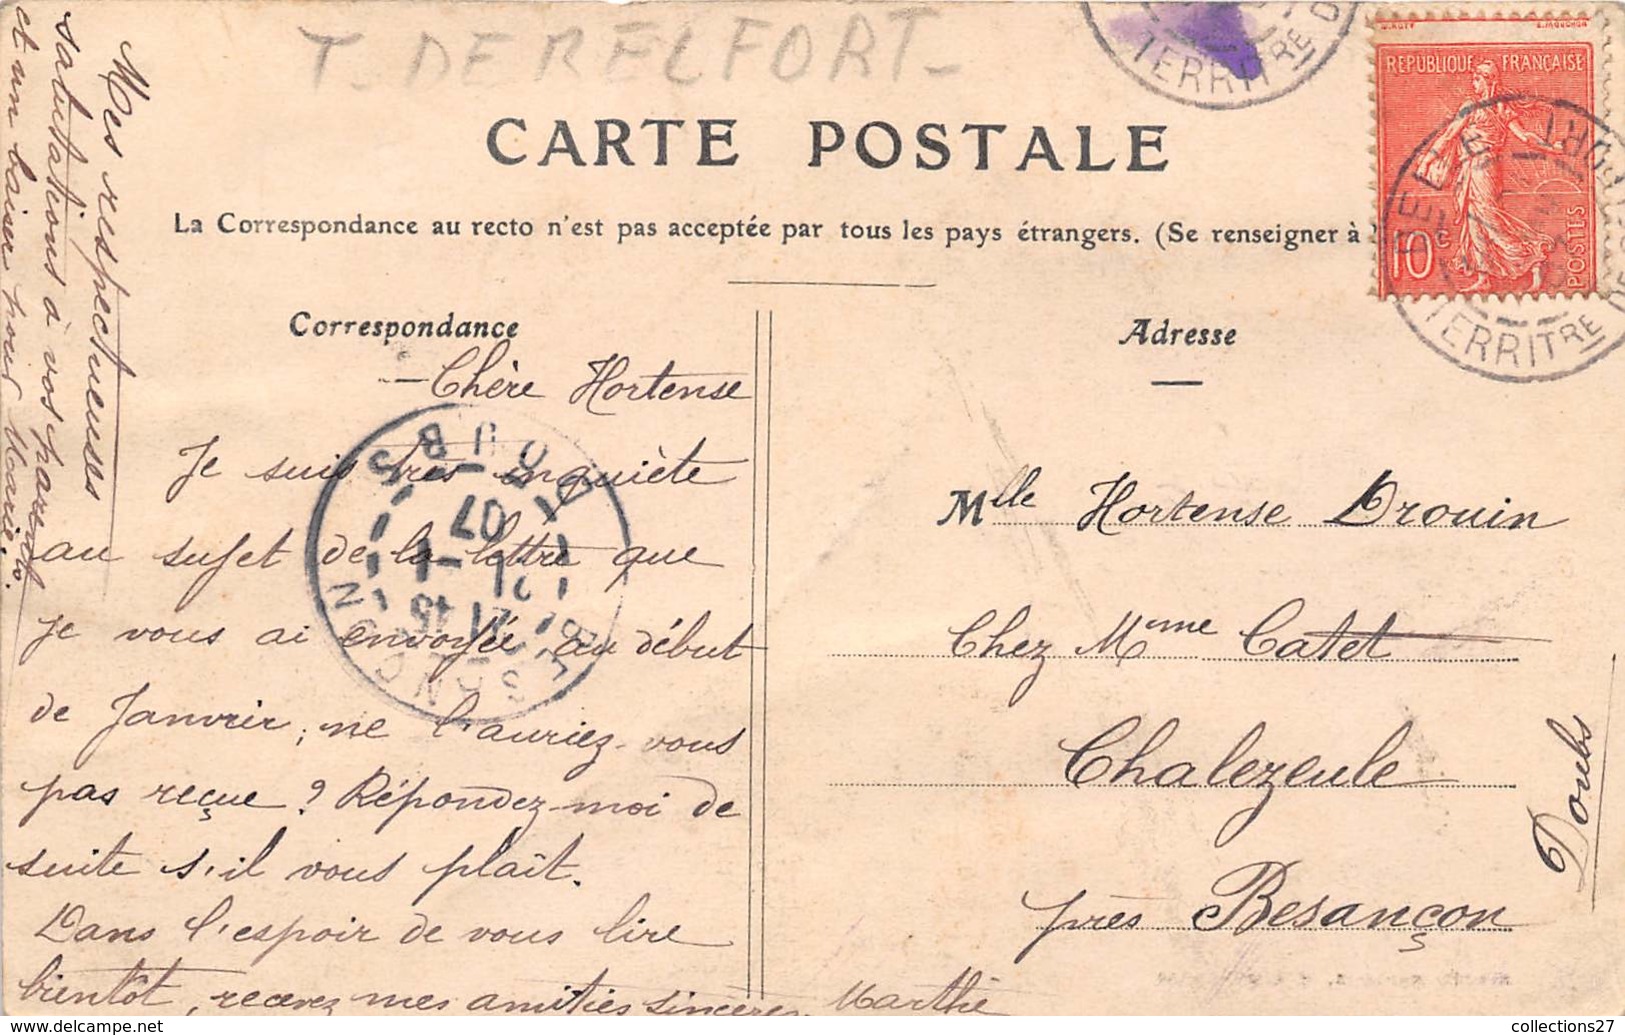 T. DE BELFORT-
CARTE POSTALE
La Correspondance au recto n'est pas acceptée par tous les pays étrangers. (Se renseigner à
Correspondance
Adresse
TERRITRE D
O. ROTY
E. MOUCHON
REPUBLIQUE FRANÇAISE
10c
POSTES
BELFORT
TERRITRE DE
Chère Hortense
Je suis très inquiète
au sujet de la lettre que
je vous ai envoyée au début
de Janvier, ne l'auriez-vous
pas reçue? Répondez-moi de
suite s'il vous plaît.
Dans l'espoir de vous lire
bientôt, recevez mes amitiés sincères. Marthe
Mes respectueuses
salutations à vos parents
et un baiser pour Marie.
BESANCON
DOUBS
07
Mlle Hortense Drouin
Chez Mme Catet
Chalezeule
près Besançon
Doubs
collections27